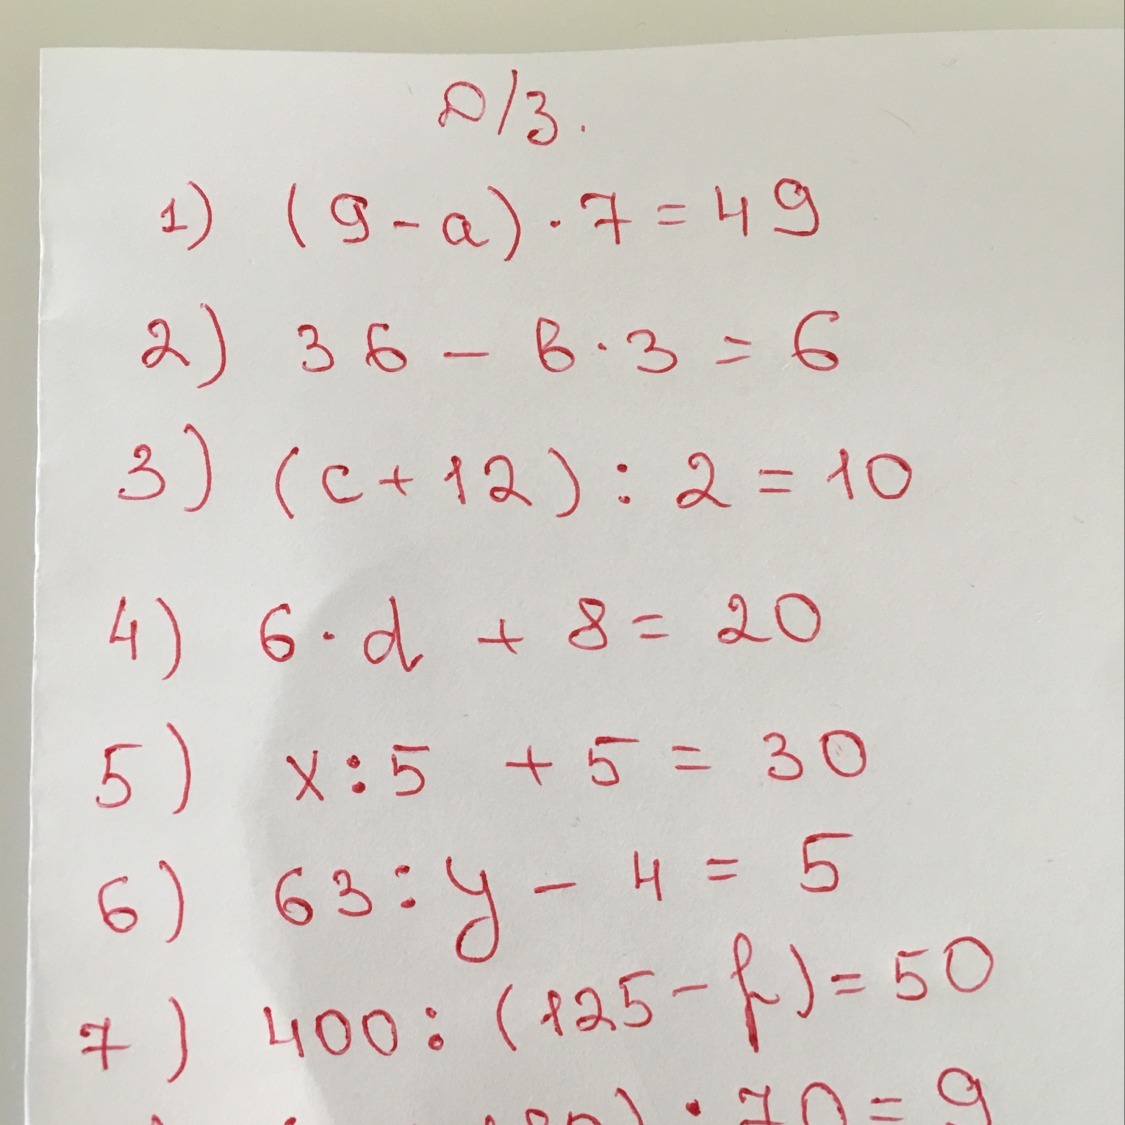 Д/З.
1) (9 - a) · 7 = 49
2) 36 - в · 3 = 6
3) (c + 12) : 2 = 10
4) 6 · d + 8 = 20
5) x : 5 + 5 = 30
6) 63 : y - 4 = 5
7) 400 : (125 - f) = 50
) · 70 = 9